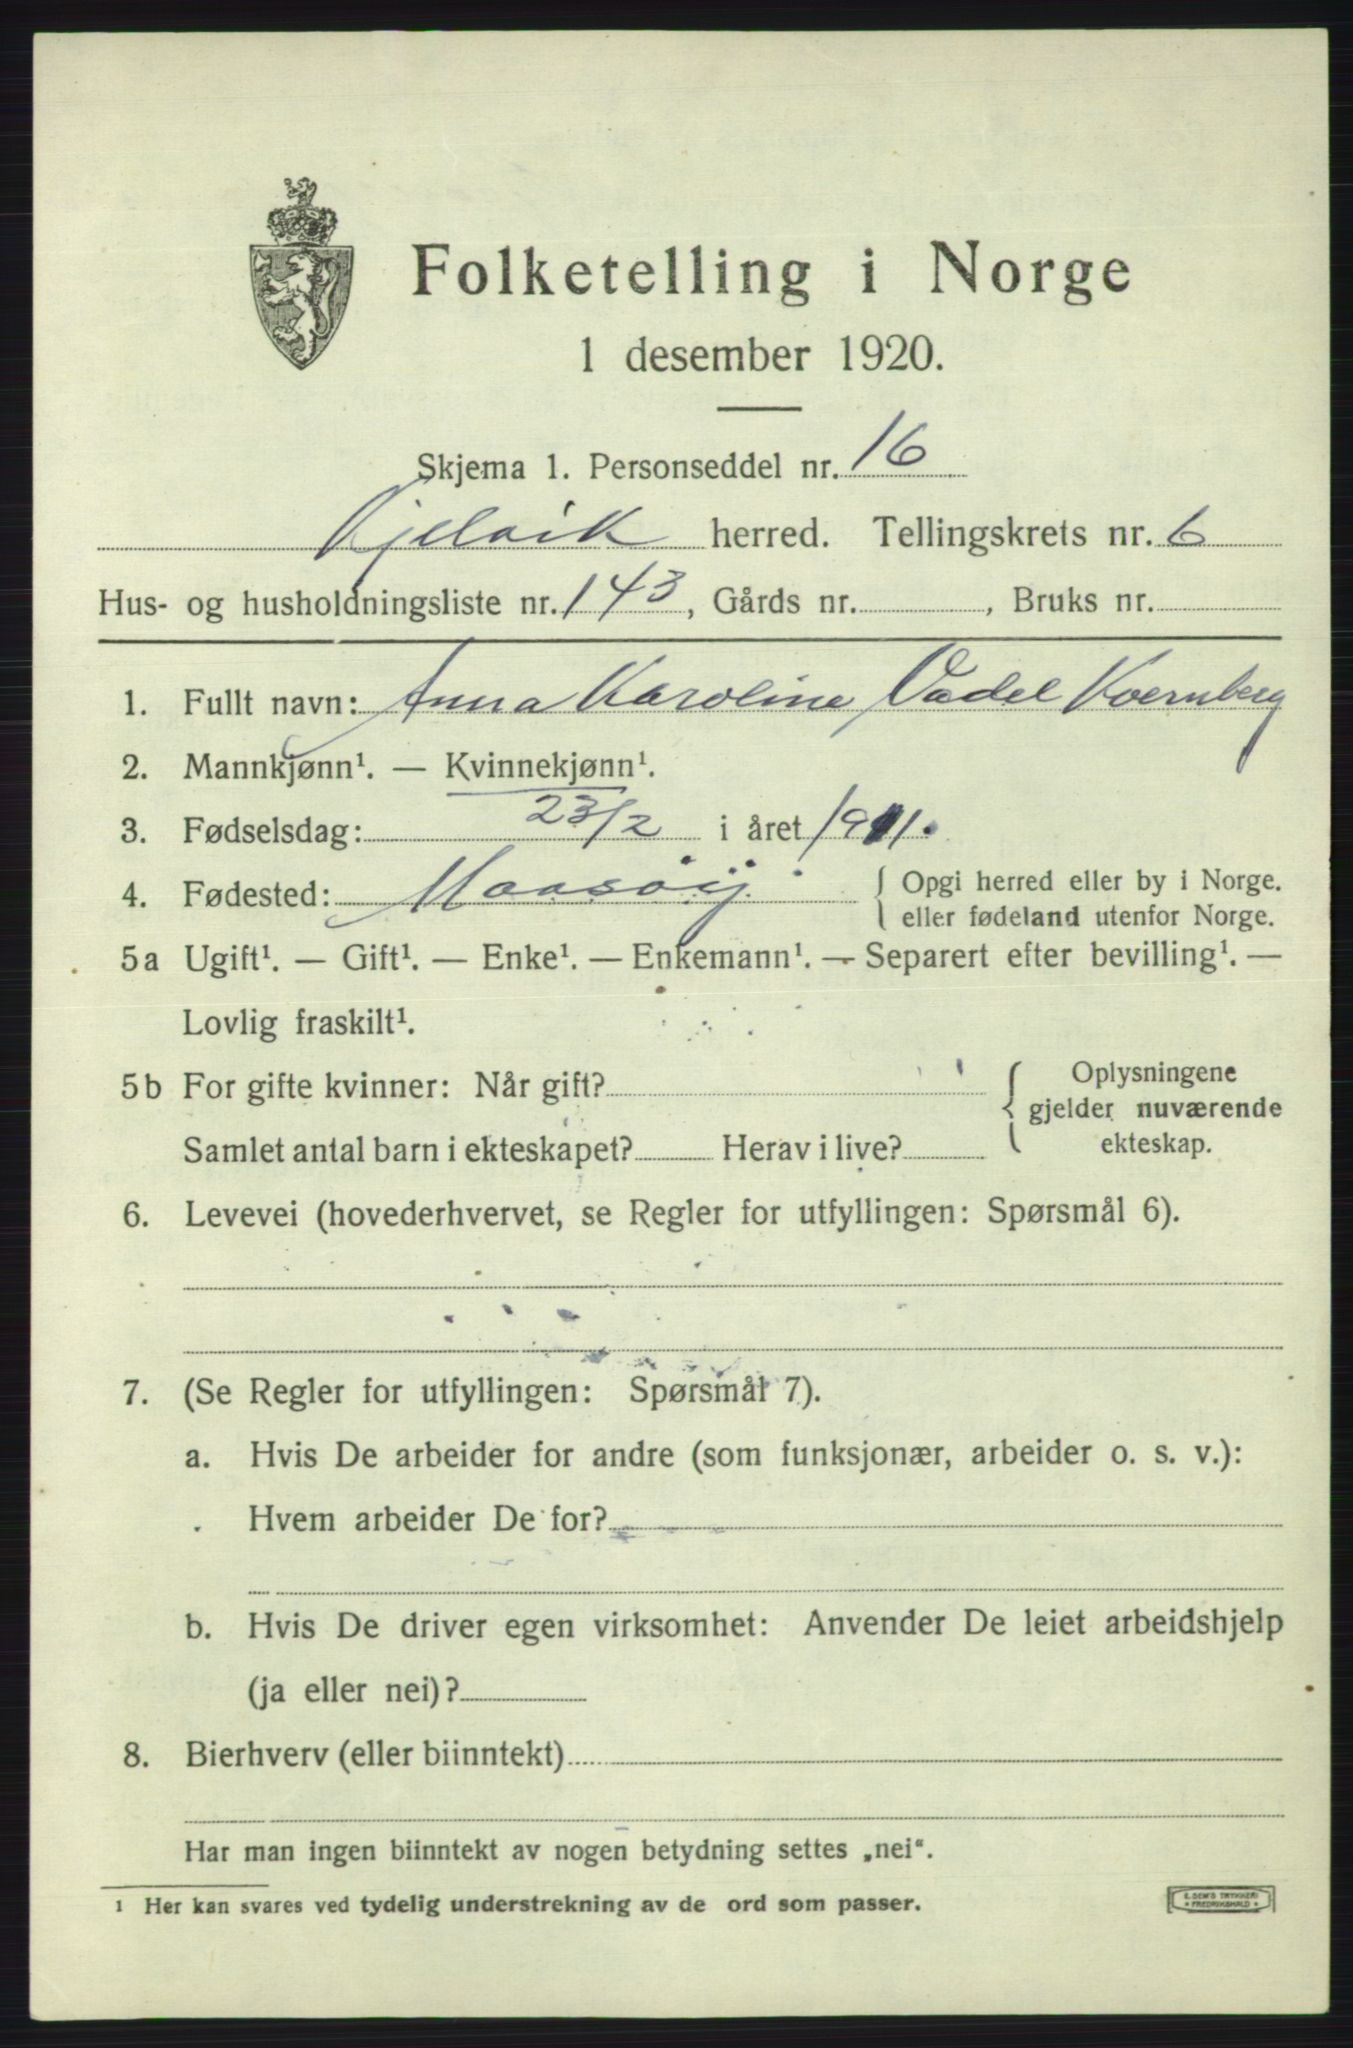 Folketelling i Norge
1 desember 1920.
Skjema 1. Personseddel nr. 16
Kjelvik herred. Tellingskrets nr. 6
Hus- og husholdningsliste nr. 143, Gårds nr. , Bruks nr.
1. Fullt navn: Anna Karoline Vadel Kvernberg
2. Mannkjønn¹. — Kvinnekjønn¹.
3. Fødselsdag: 23/2 i året 1911.
4. Fødested: Maasöy { Opgi herred eller by i Norge.
eller fødeland utenfor Norge.
5a Ugift¹. — Gift¹. — Enke¹. — Enkemann¹. — Separert efter bevilling¹. —
Lovlig fraskilt¹.
5b For gifte kvinner: Når gift?
Samlet antal barn i ekteskapet? Herav i live?
{ Oplysningene
gjelder nuværende
ekteskap.
6. Levevei (hovederhvervet, se Regler for utfyllingen: Spørsmål 6).
7. (Se Regler for utfyllingen: Spørsmål 7).
a. Hvis De arbeider for andre (som funksjonær, arbeider o. s. v.):
Hvem arbeider De for?
b. Hvis De driver egen virksomhet: Anvender De leiet arbeidshjelp
(ja eller nei)?
8. Bierhverv (eller biinntekt)
Har man ingen biinntekt av nogen betydning settes „nei".
¹ Her kan svares ved tydelig understrekning av de ord som passer.
E. SEM'S TRYKKERI
FREDRIKSHALD